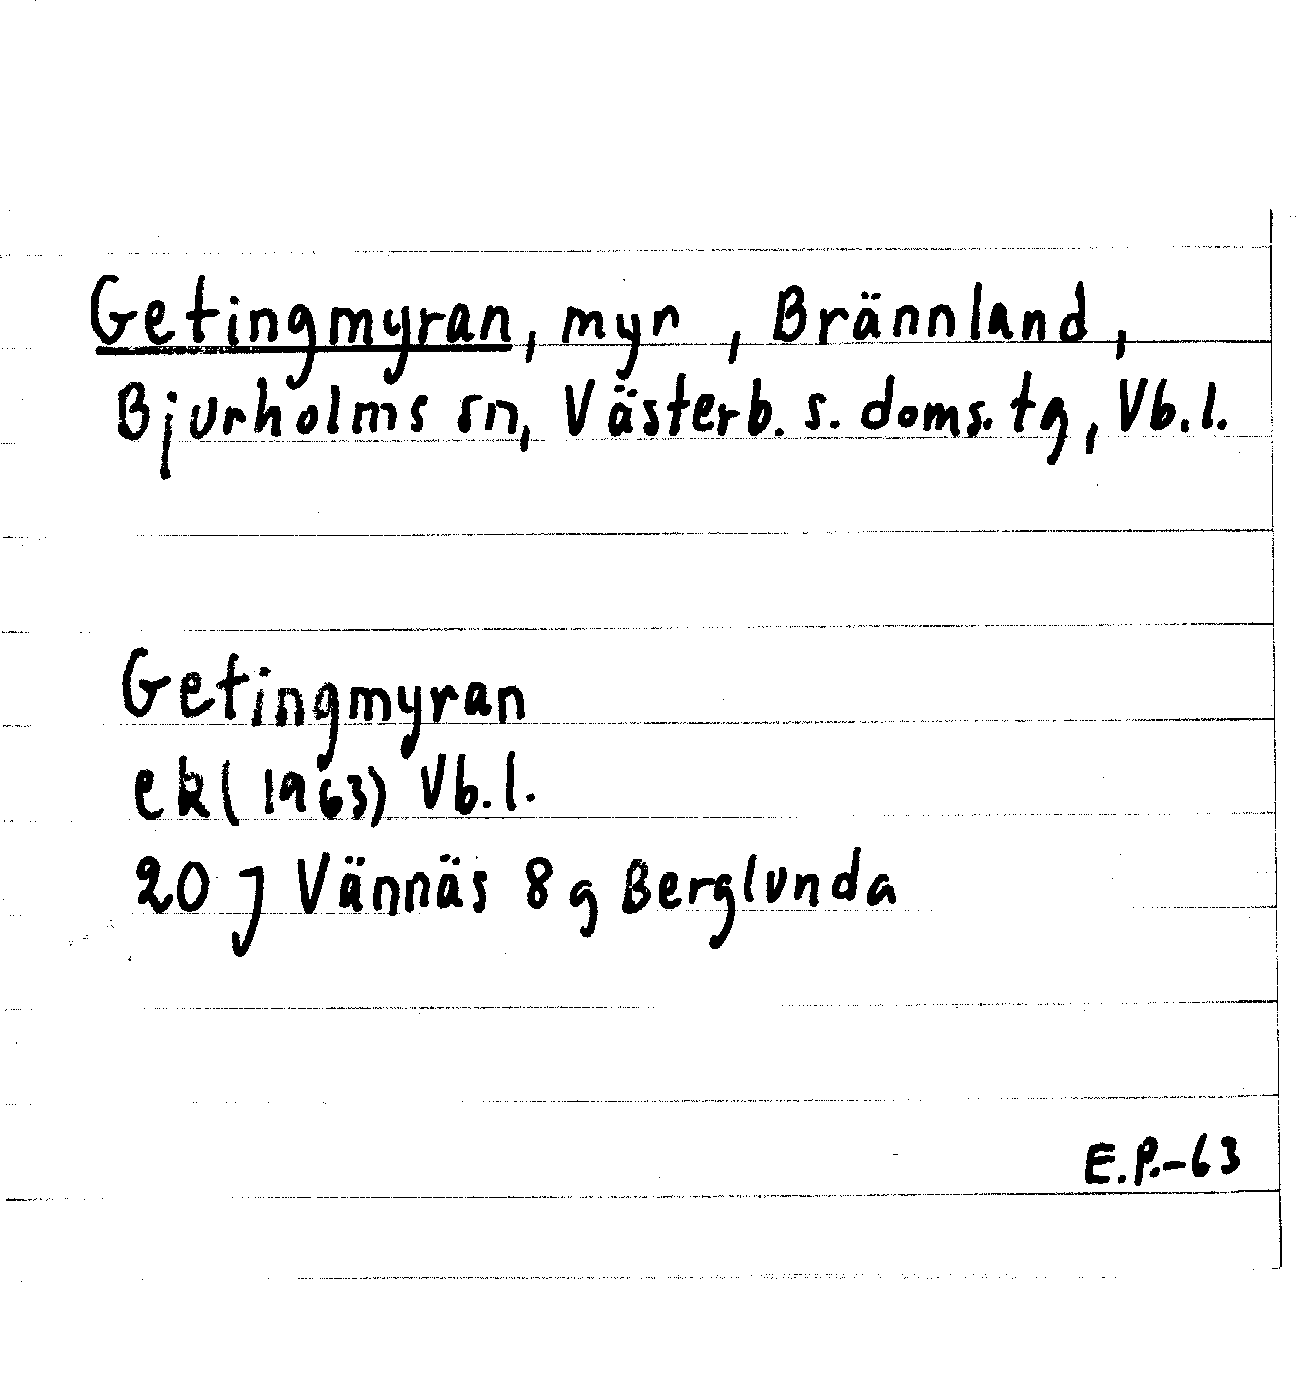 Getingmyran, myr, Brännland,
Bjurholms sn, Västerb. s. doms. tg, Vb. l.
Getingmyran
ek (1963) Vb. l.
20 J Vännäs 8 g Berglunda
E.P.-63